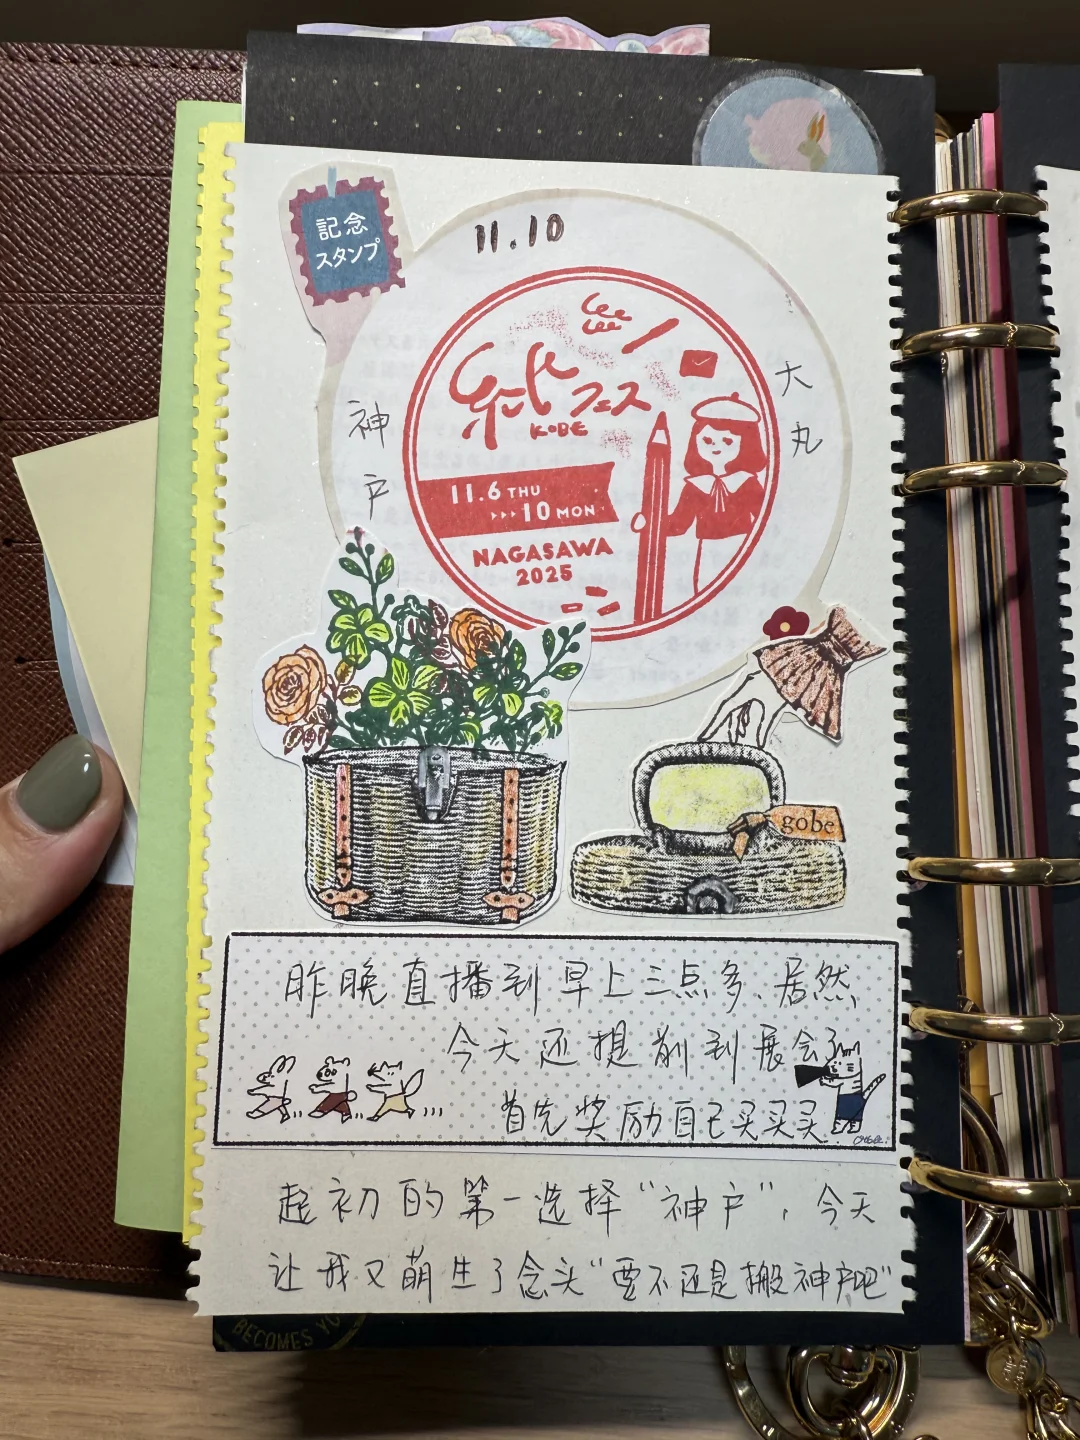 記念
スタンプ
11.10
紙フェス
KOBE
11.6 THU
10 MON
NAGASAWA
2025
神戸
大丸
gobe
昨晚直播到早上三点多、居然
今天还提前到展会了
首先奖励自己买买买
起初的第一选择“神户”，今天
让我又萌生了念头“要不还是搬神户吧”
BECOMES